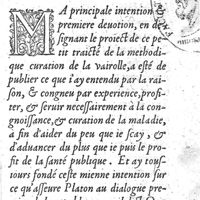 MA principale intention &
premiere deuotion, en de-
signant le proiect de ce pe
tit traicté de la methodi-
que curation de la vairolle, a esté de
publier ce que i'ay entendu par la rai-
son, & congneu par experience, profi-
ter, & seruir necessairement à la con-
gnoissance, & curation de la maladie,
a fin d'aider du peu que ie scay, & d'a-
duancer du plus que ie puis le pro-
fit de la santé publique. Et ay tous-
iours fondé ceste mienne intention sur
ce qu'asseure Platon au dialogue pre-